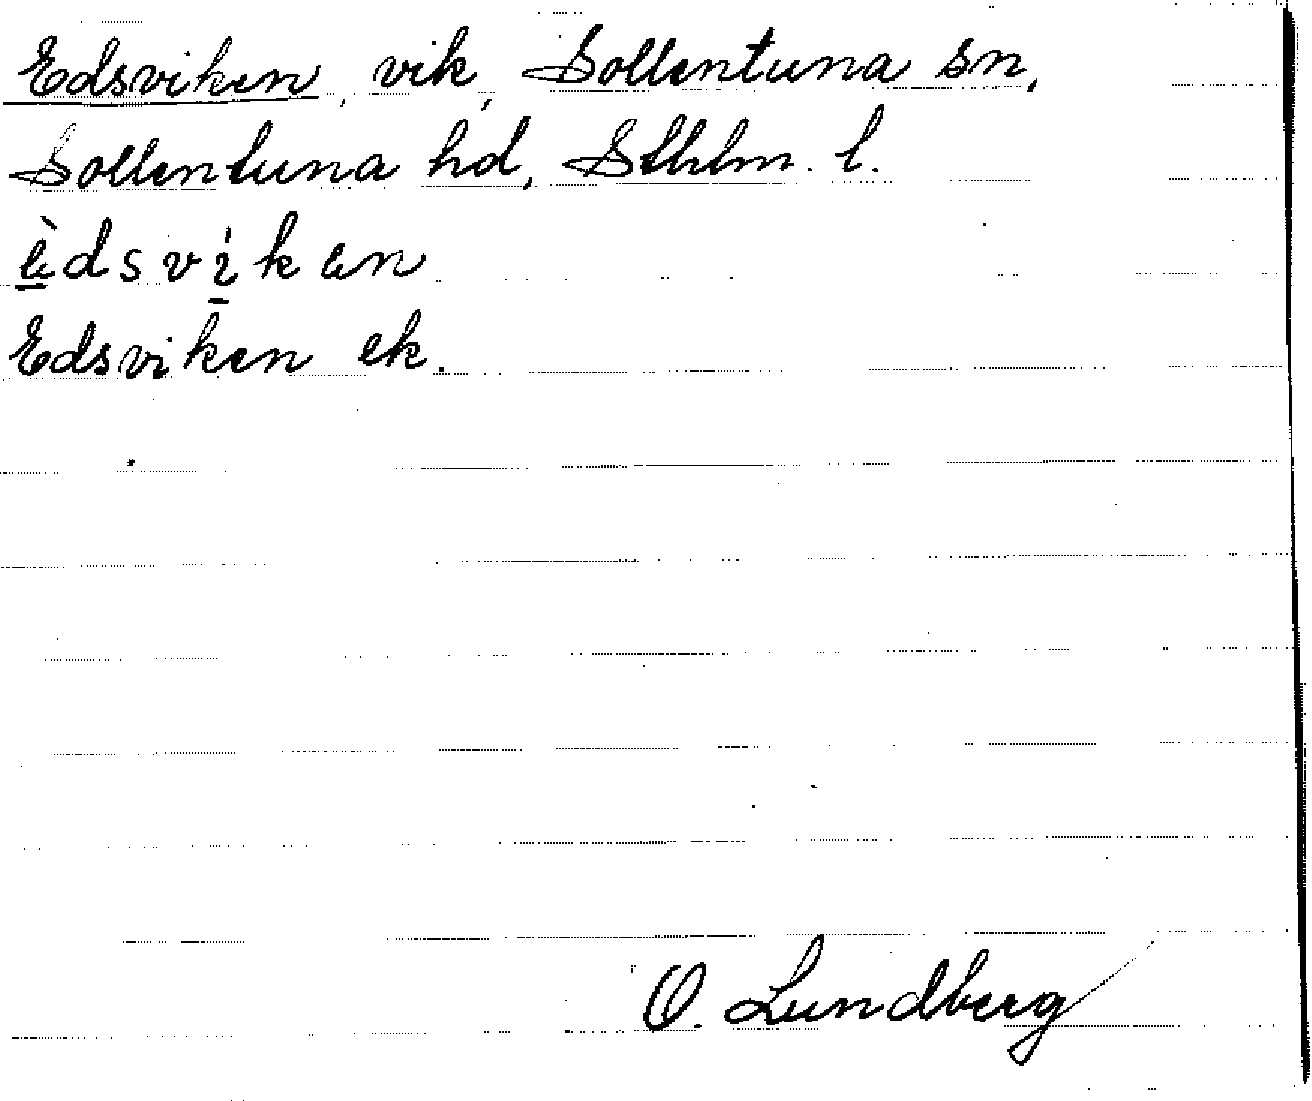 Edsviken, vik, Sollentuna sn,
Sollentuna hd, Sthlm. l.
èdsvíken
Edsviken ek.
O. Lundberg